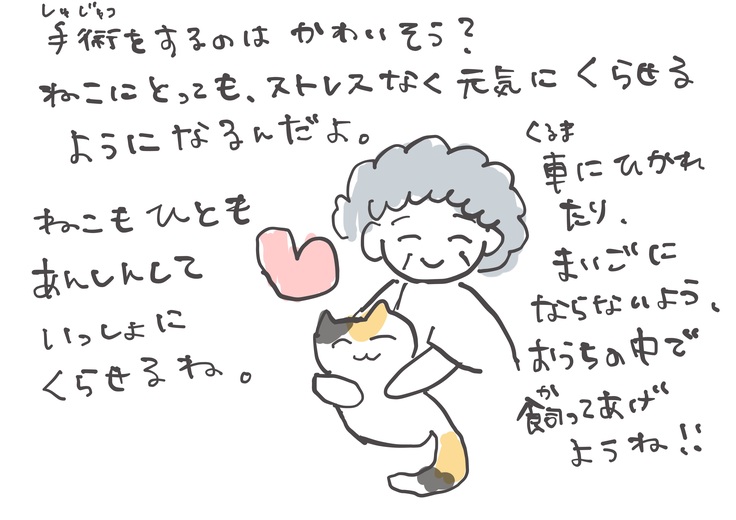 しゅじゅつ
手術をするのは かわいそう?
ねこにとっても、ストレスなく 元気に くらせる
ようになるんだよ。
ねこも ひとも
あんしんして
いっしょに
くらせるね。
くるま
車に ひかれ
たり、
まいごに
ならないよう、
おうちの中で
か
飼ってあげ
ようね!!